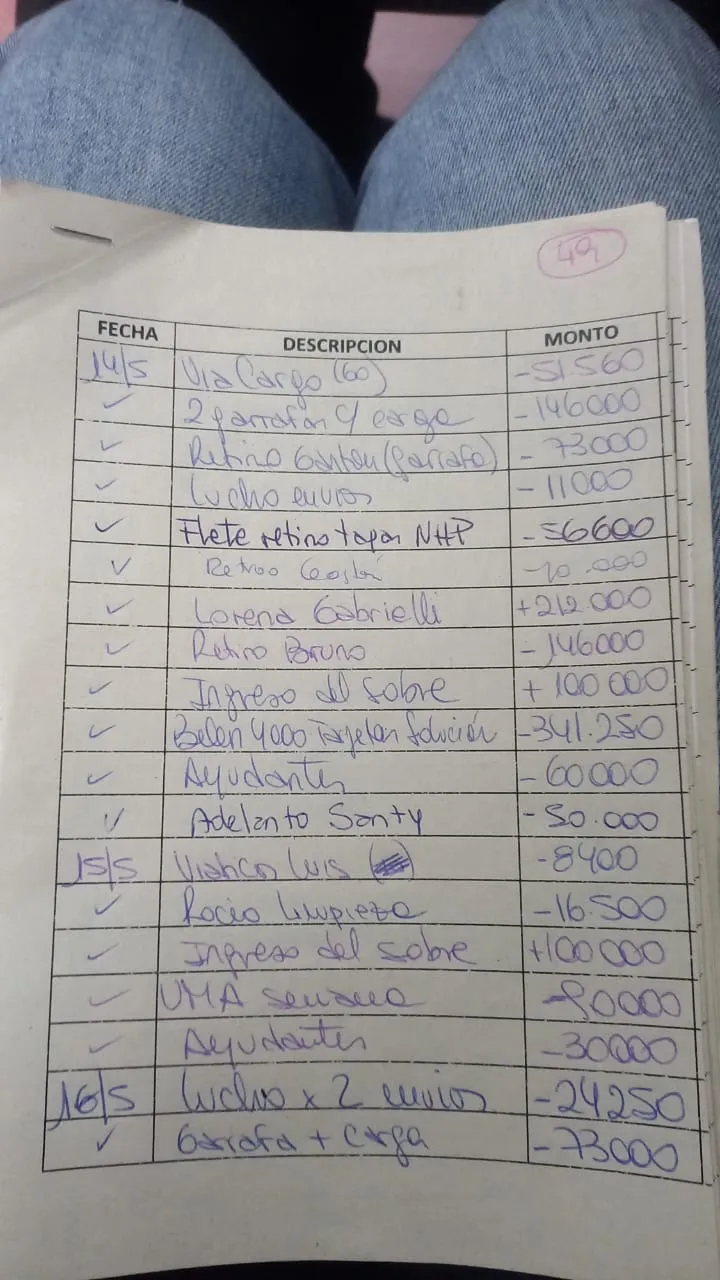 49
FECHA DESCRIPCION MONTO
14/5 Via Cargo (60) -51.560
✓ 2 garrafan c/ carga -146000
✓ Retiro Gastón (garrafa) -73000
✓ Lucho envios -11000
✓ Flete retiro tapas NHP -56600
✓ Retiro .000
✓ Lorena Gabrielli +212.000
✓ Retiro Bruno -146000
✓ Ingreso del sobre +100000
✓ Belen 4000 Tarjetas -341.250
✓ Ayudantes -60000
✓ Adelanto Santy -50.000
15/5 Viaticos Luis -8400
✓ Rocio limpieza -16.500
✓ Ingreso del sobre +100000
✓ UMA semana
✓ Ayudantes -30000
16/5 Lucho x 2 envios -24250
✓ Garrafa + carga -73000